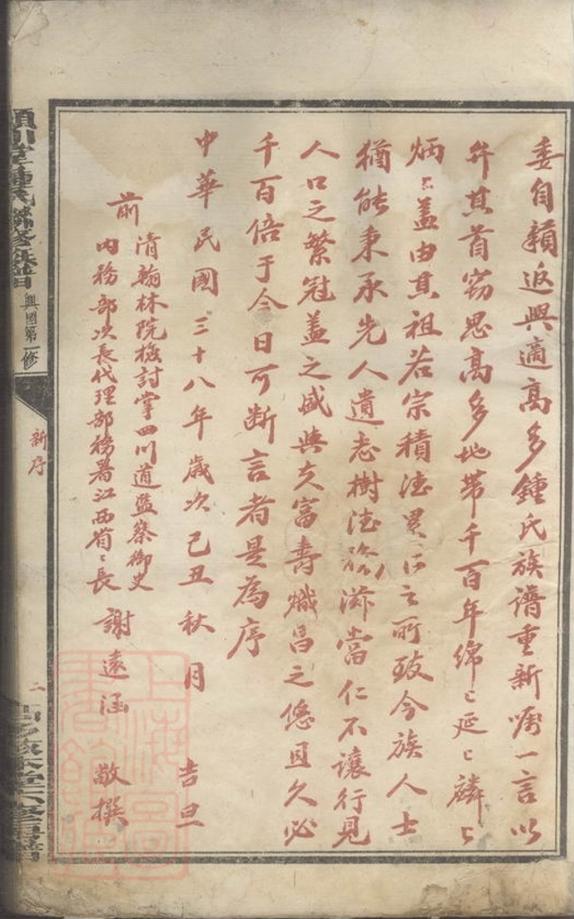 委自贛返興適高多鍾氏族譜重新囑一言以
弁其首竊思高多地帶千百年綿〻延〻麟〻
炳〻蓋由其祖若宗積德累仁之所致今族人士
猶能秉承先人遺志樹德務滋當仁不讓行見
人口之繁冠蓋之盛與夫富壽熾昌之悠且久必
千百倍于今日可斷言者是為序
中華民國三十八年歲次己丑秋月 吉旦
前
清翰林院檢討掌四川道監察御史
內務部次長代理部務署江西省〻長
謝遠涵 敬撰
鍾氏聯修族譜 興國第一修
新序
二
上海圖書館藏